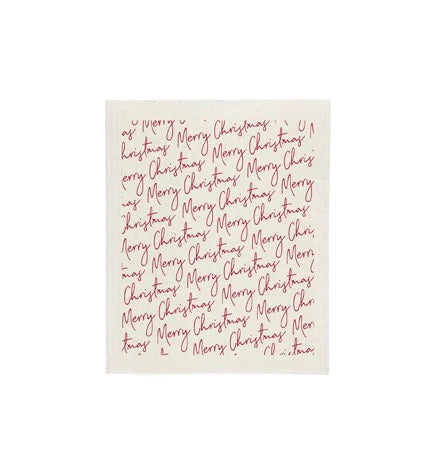 Merry Christmas
as Merry Christmas M
hristmas Merry Christmas
erry Christmas Merry
Merry Christmas Merry
Christmas Merry Christmas
Merry Christmas Merry
Christmas Merry Christmas
Merry Christmas Merry
Christmas Merry Christmas
Merry Christmas Merry Chr
tmas Merry Christmas Mer
Merry Christmas